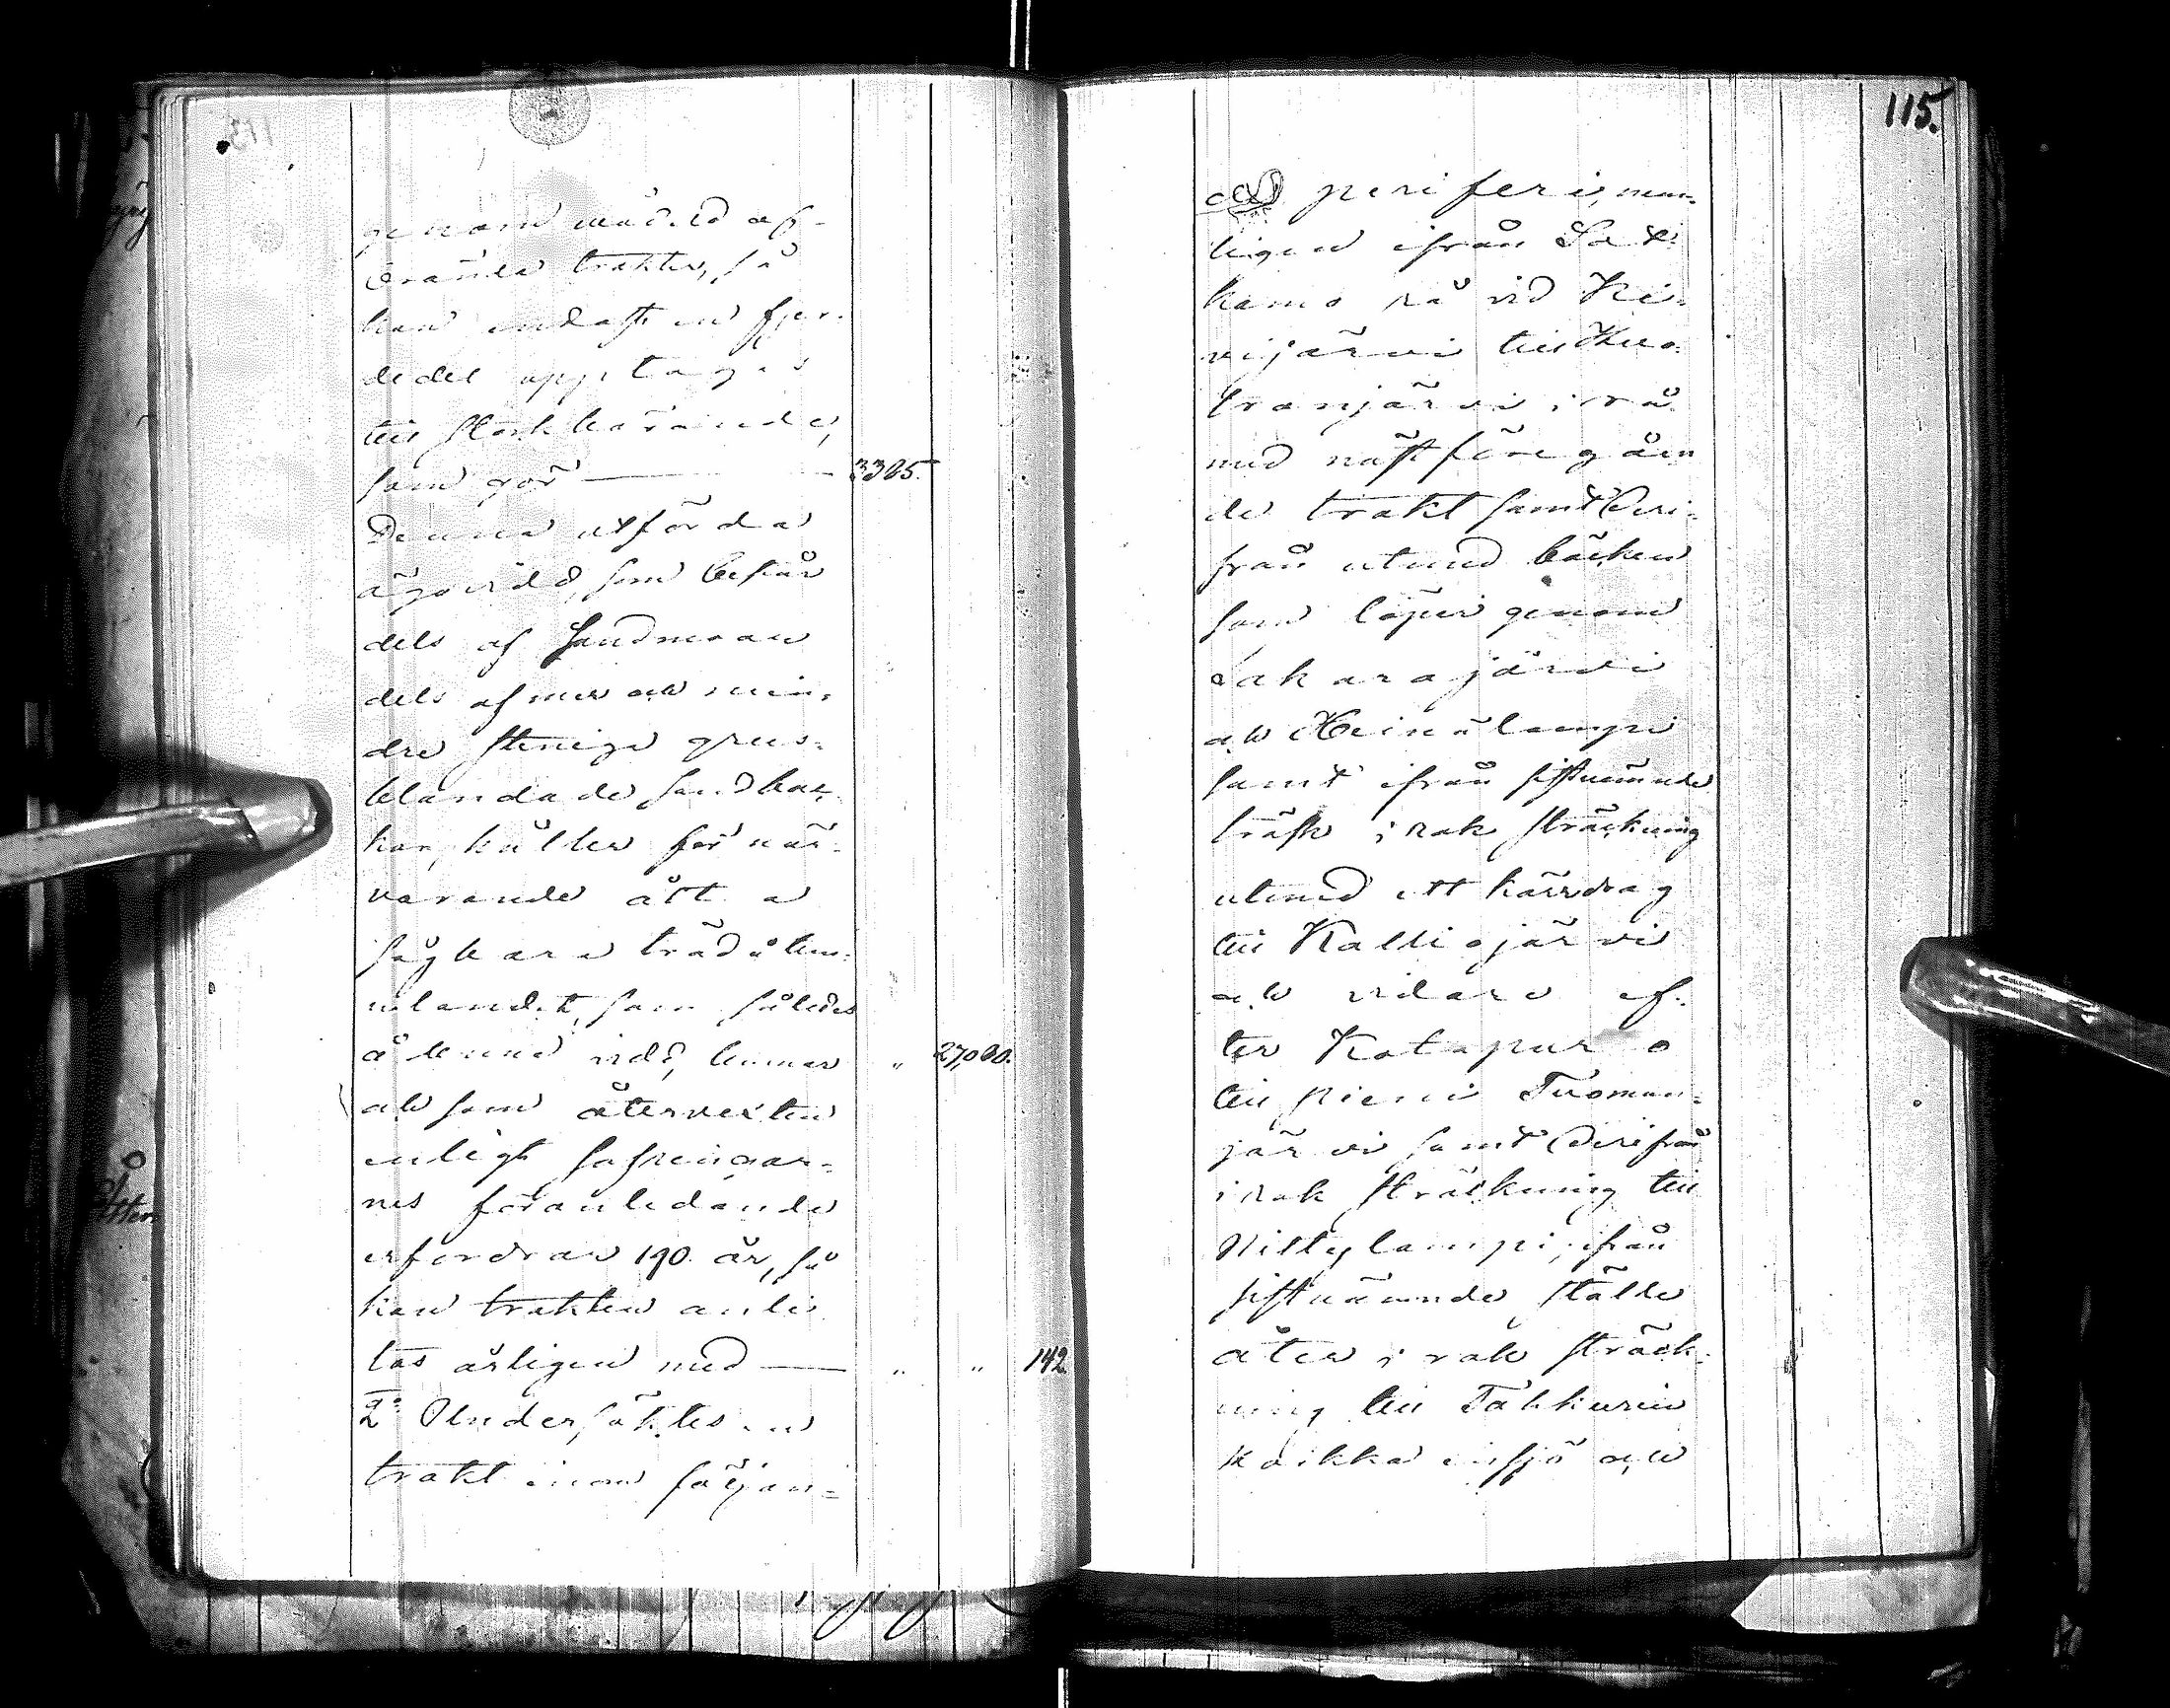 genom vådeld af-
brända trakter, så
kan endast en fjer-
dedel upptages
till storkbärande,
som gör — 3305.
Denna utförda
ägovidd, som består
dels af Sandmoar
dels af mer och min-
dre steniga grus-
blandade sandbac-
kar, håller för när-
varande åtta
sågbara träd å tun-
nelandet, som således
å denna vidd, lemnar " 27,000.
och som återvexten
enligt
nes föranledande
erfordrar 190. år, så
kan trakten anli-
tas årligen med — " " 142
2:o Undersöktes en
trakt inom följan-
115.
de periferi, nem-
ligen ifrån
kamo rå vid Ki-
vijärvi till Kuo-
tranjärvi, rå
med nästföregåen
de trakt samt deri-
från utmed bäcken
som löper genom
Sakarajärvi
och Heinälampi
samt ifrån sistnämnde
träsk i rak sträckning
utmed ett kärrdrag
till Kalliojärvi
och vidare ef-
ter Katapuro
till pieni Tuoman-
järvi samt derifrån
i rak sträckning till
Niittylampi, ifrån
sistnämnde ställe
åter i rak sträck-
ning till Tahkurin
koikka insjö och